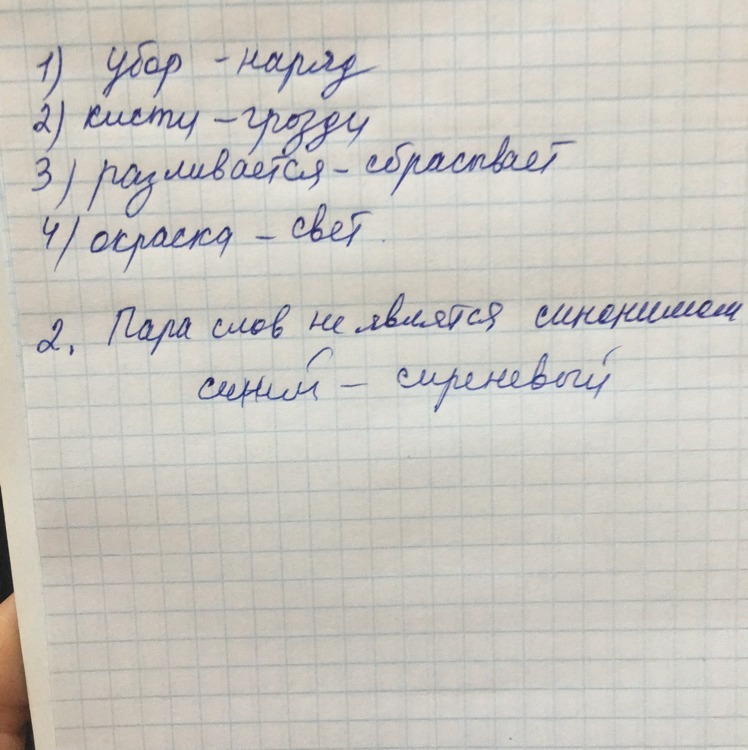 1) убор - наряд
2) кисти - грозди
3) разливается - сбрасывает
4) окраска - свет.
2. Пара слов не являтся синонимом
синий - сиреневый